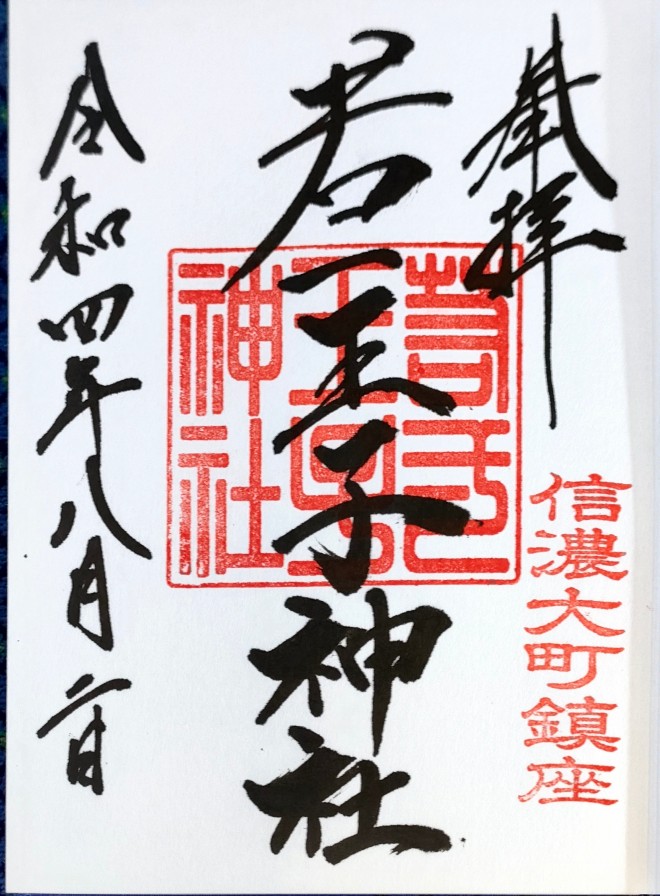 奉拝
信濃大町鎮座
若一王子神社
神社
令和四年八月二日